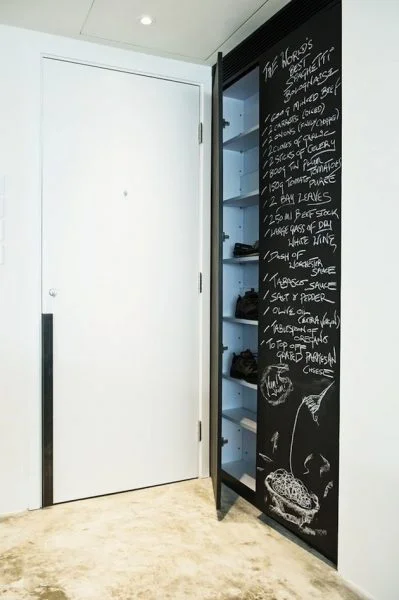 THE WORLD'S
BEST
SPAGHETTI
BOLOGNAISE
/ 600g MINCED BEEF
/ 2 CARROTS (DICED)
/ 2 ONIONS (FINELY CHOPPED)
/ 2 CLOVES OF GARLIC
/ 2 STICKS OF CELERY
/ 800g TIN PLUM
TOMATOES
/ 150g TOMATO PUREE
/ 2 BAY LEAVES
/ 250 ml BEEF STOCK
/ LARGE GLASS OF DRY
WHITE WINE
/ DASH OF
WORCHESTER
SAUCE
/ TABASCO SAUCE
/ SALT & PEPPER
/ OLIVE OIL
(EXTRA VIRGIN)
/ TABLESPOON OF
OREGANO
/ TO TOP OFF
GRATED PARMESAN
CHEESE